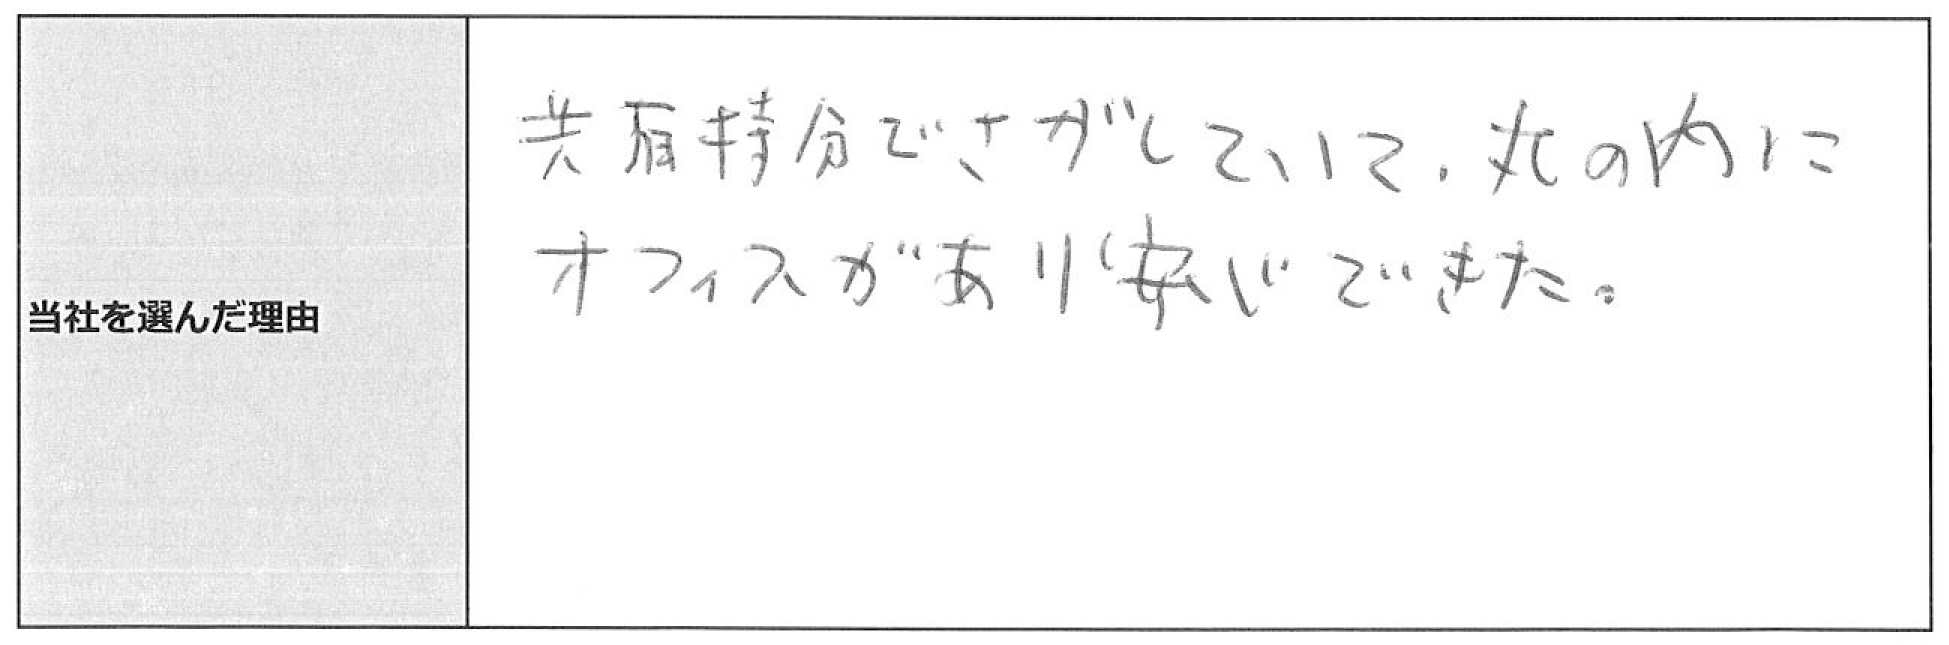 当社を選んだ理由
共有持分でさがしていて、丸の内に
オフィスがあり安心できた。